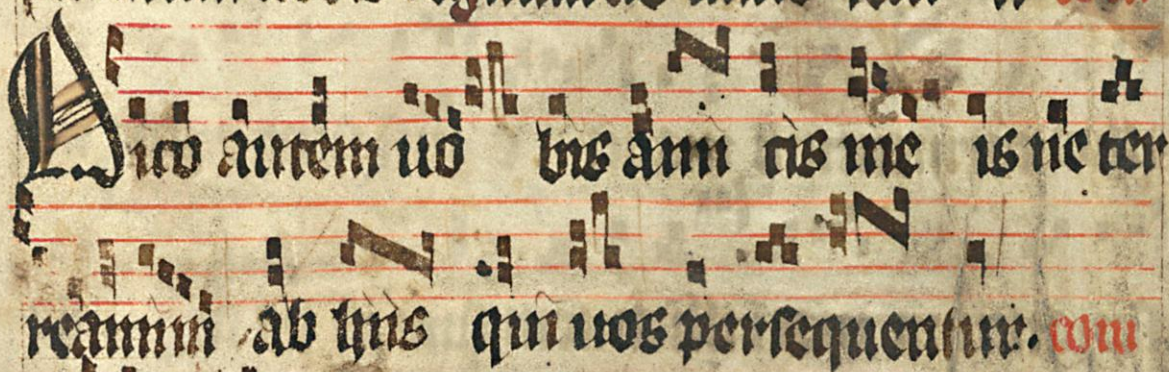 Dico autem uo bis ami cis me is ne ter
reamini ab hiis qui uos persequentur. com